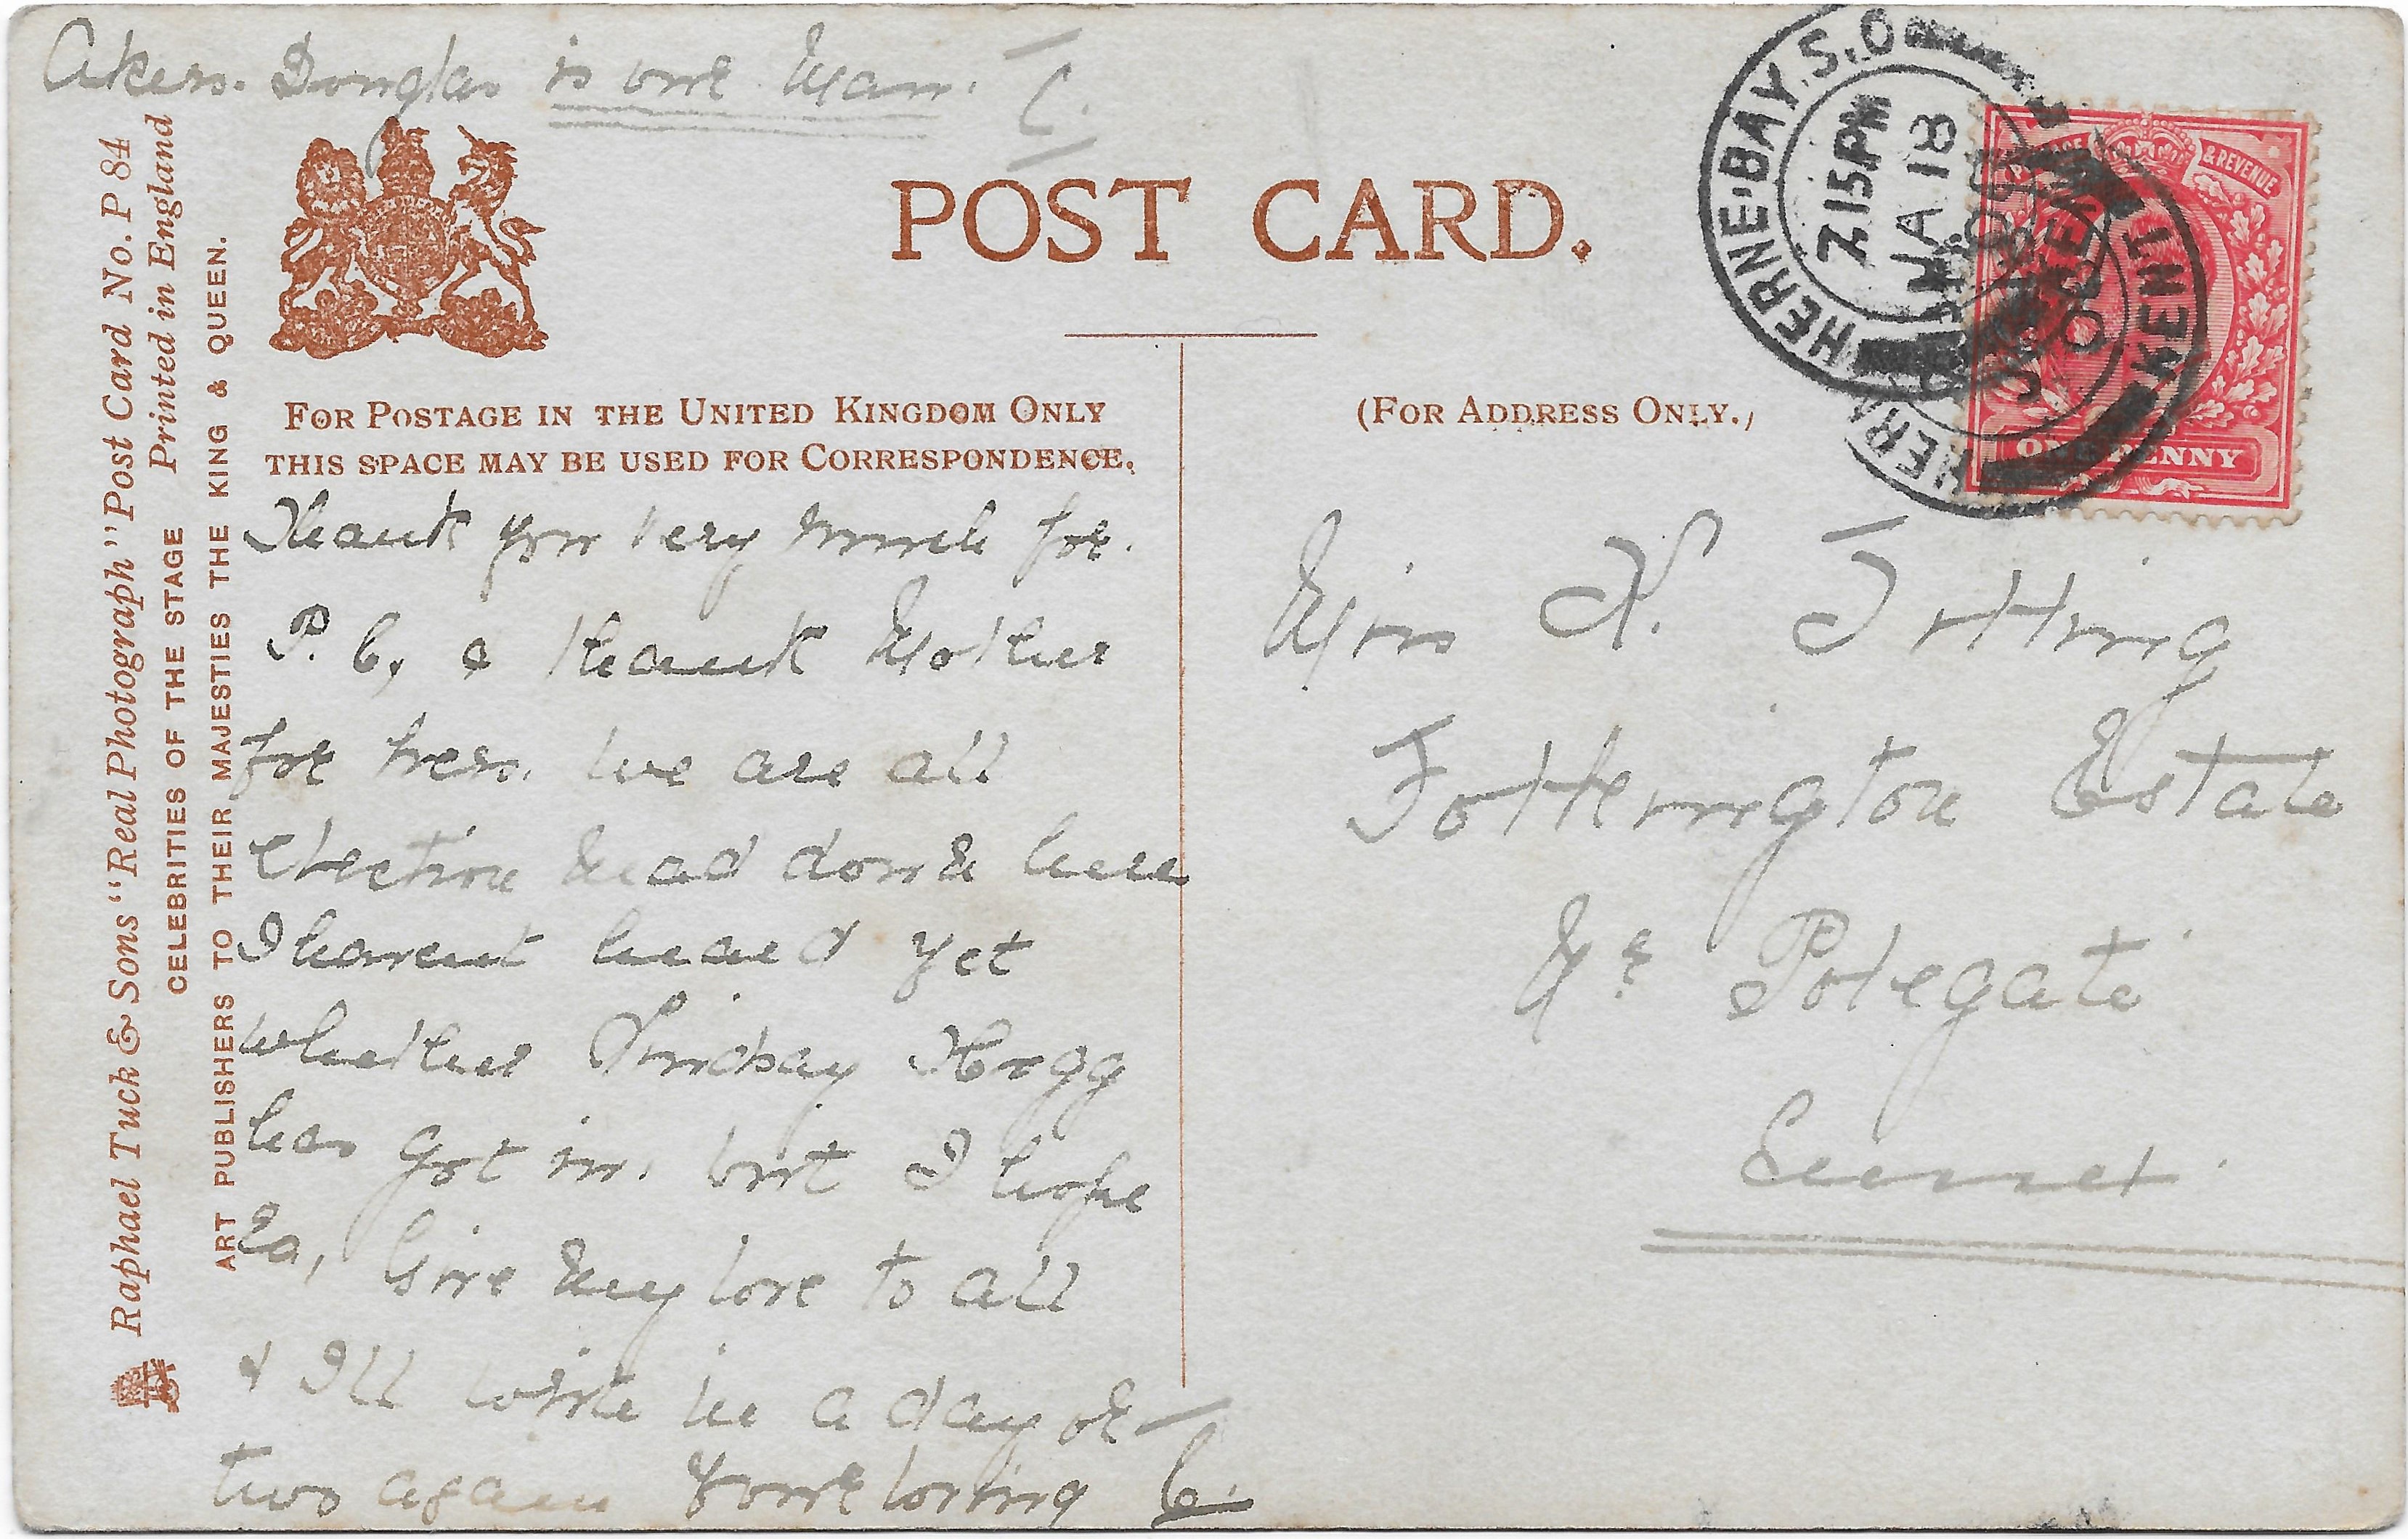 Akers. Douglas is our Man. C.
POST CARD.
FOR POSTAGE IN THE UNITED KINGDOM ONLY
THIS SPACE MAY BE USED FOR CORRESPONDENCE.
(FOR ADDRESS ONLY.)
Raphael Tuck & Sons "Real Photograph" Post Card No. P 84
CELEBRITIES OF THE STAGE Printed in England
ART PUBLISHERS TO THEIR MAJESTIES THE KING & QUEEN.
HERNE·BAY.S.O
7.15PM
JA 18
06
KENT
& REVENUE
ONE PENNY
Thank you very much for
P. C, & thank Mother
for hers. We are all
election mad down here
I havent heard yet
whether Lindsay Hogg
has got in. but I hope
so, Give my love to all
& Ill write in a day or
two again Your loving C.
Miss K.
Fotherington Estate
Nr Polegate
Sussex.